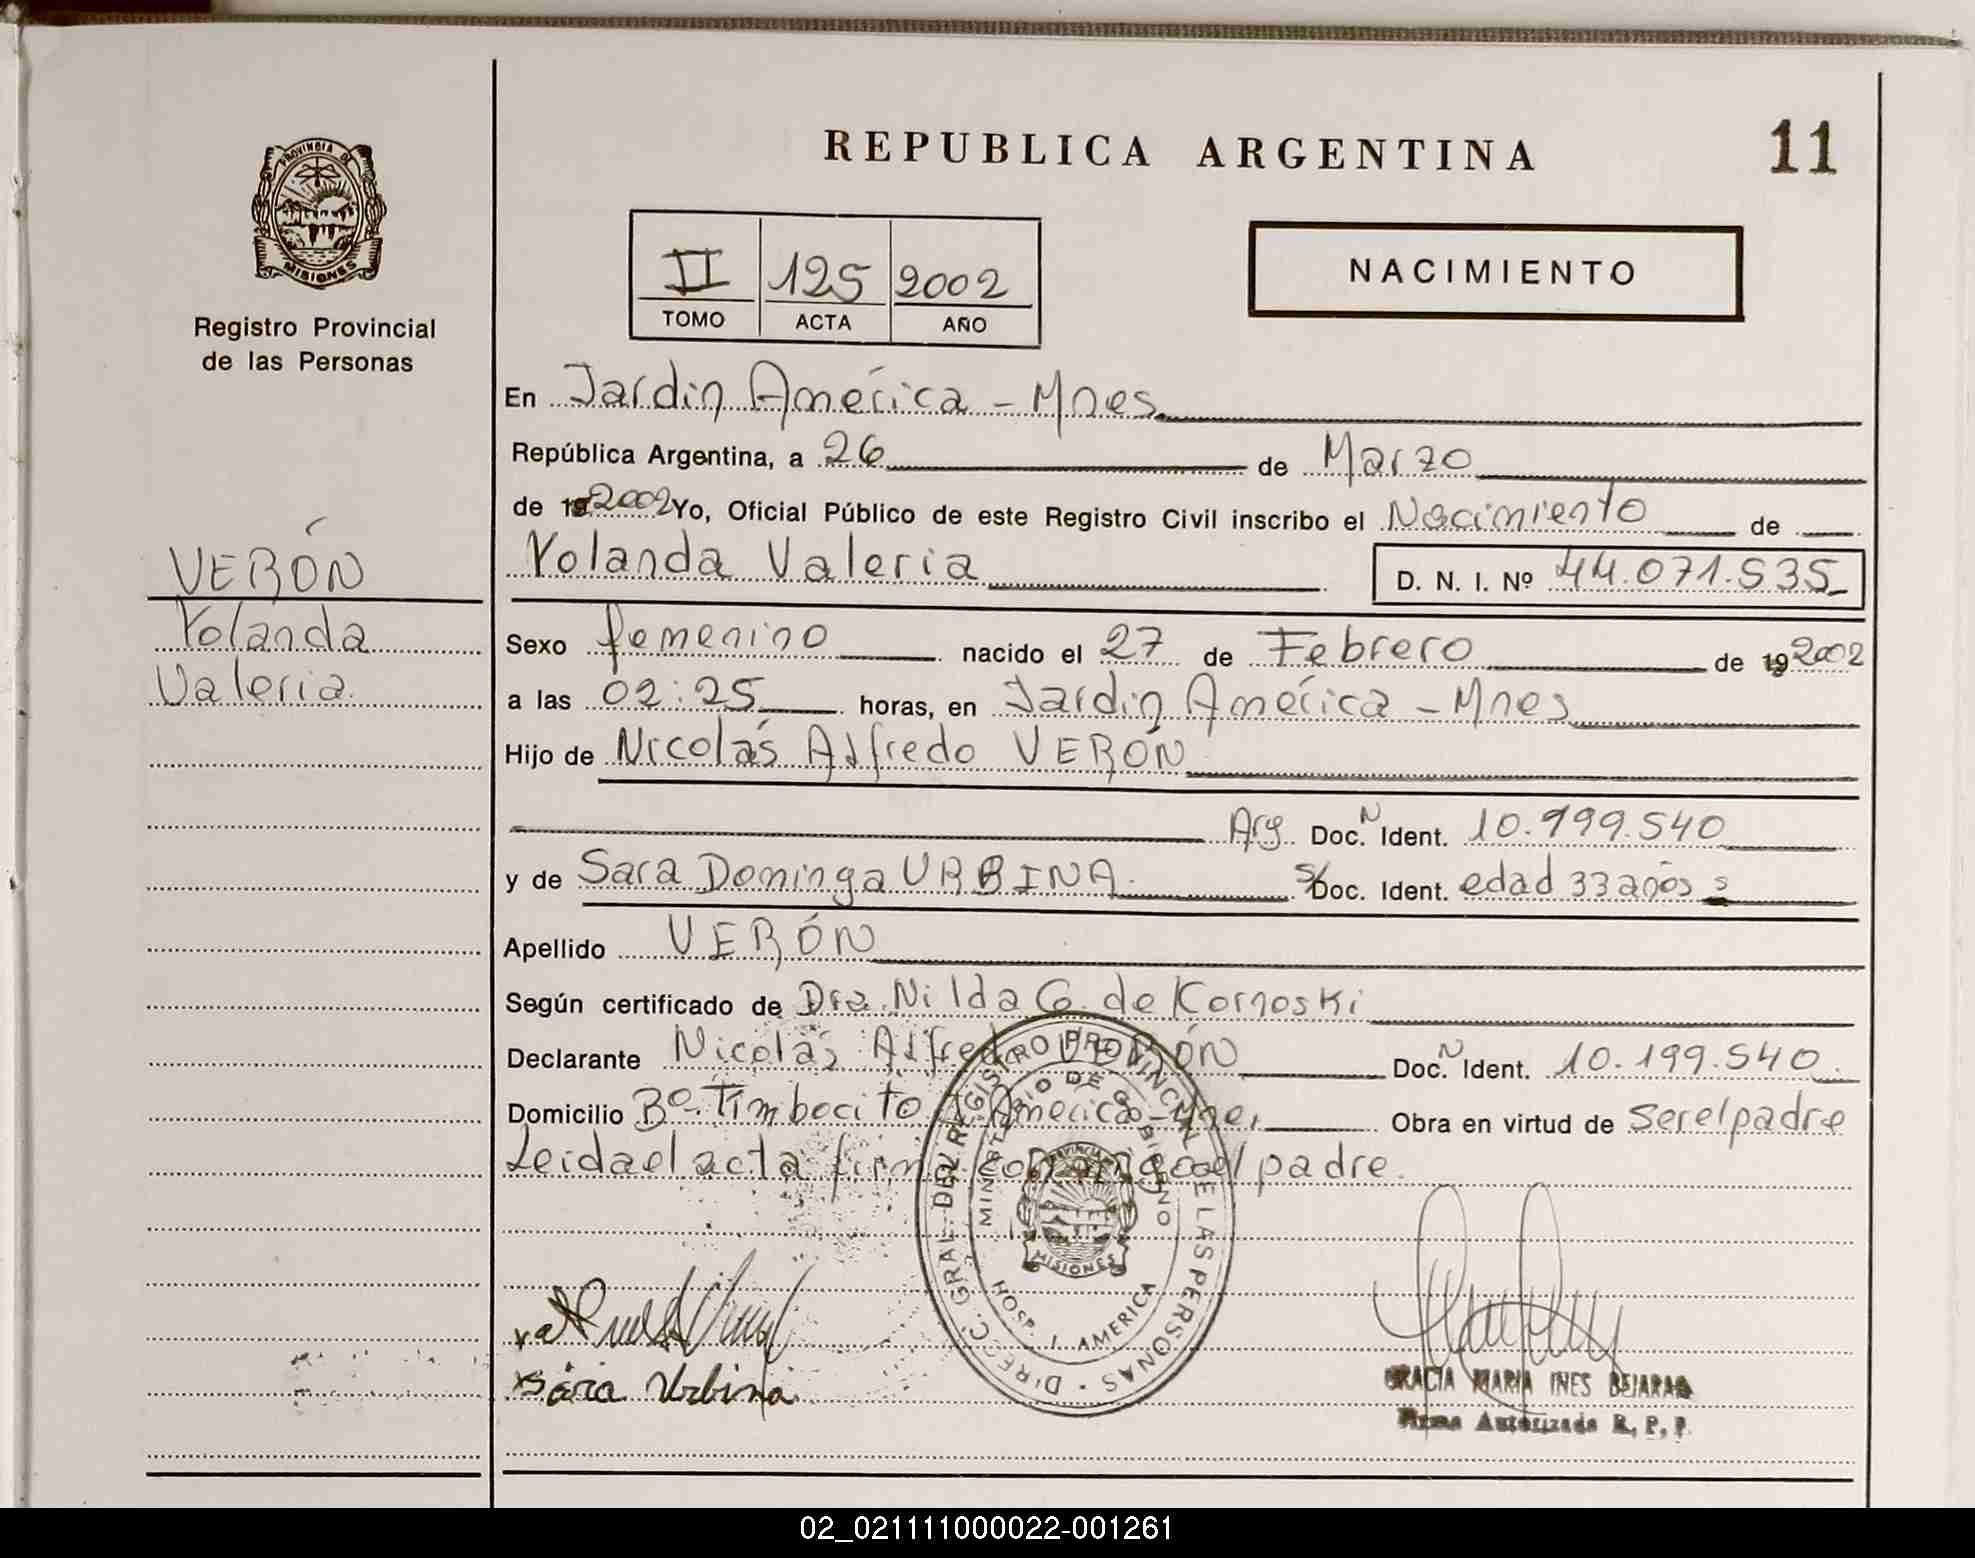 REPUBLICA ARGENTINA
11
PROVINCIA DE
MISIONES
Registro Provincial
de las Personas
II 125 2002
TOMO ACTA AÑO
NACIMIENTO
VERÓN
Yolanda
Valeria.
En Jardin América - Mnes
República Argentina, a 26 de Marzo
de 19 2002 Yo, Oficial Público de este Registro Civil inscribo el Nacimiento de
Yolanda Valeria D. N. I. Nº 44.071.535
Sexo femenino nacido el 27 de Febrero de 19 2002
a las 02:25 horas, en Jardin América - Mnes
Hijo de Nicolás Alfredo VERÓN
Arg. Doc. N Ident. 10.199.540
y de Sara Dominga URBINA. s/Doc. Ident. edad 33 años
Apellido VERÓN
Según certificado de Dra. Nilda G. de Kornoski
Declarante Nicolás Alfredo VERÓN Doc. N Ident. 10.199.540.
Domicilio Bº. Timbocito J. América - Mnes Obra en virtud de ser el padre
Leida el acta firma conmigo el padre.
DIRECC. GRAL. DEL REGISTRO PROVINCIAL DE LAS PERSONAS
MINISTERIO DE GOBIERNO
PROVINCIA
MISIONES
HOSP. J. AMERICA
x Sara Urbina
GRACIA MARIA INES BEJARAN
Firma Autorizada R. P. P.
02_021111000022-001261